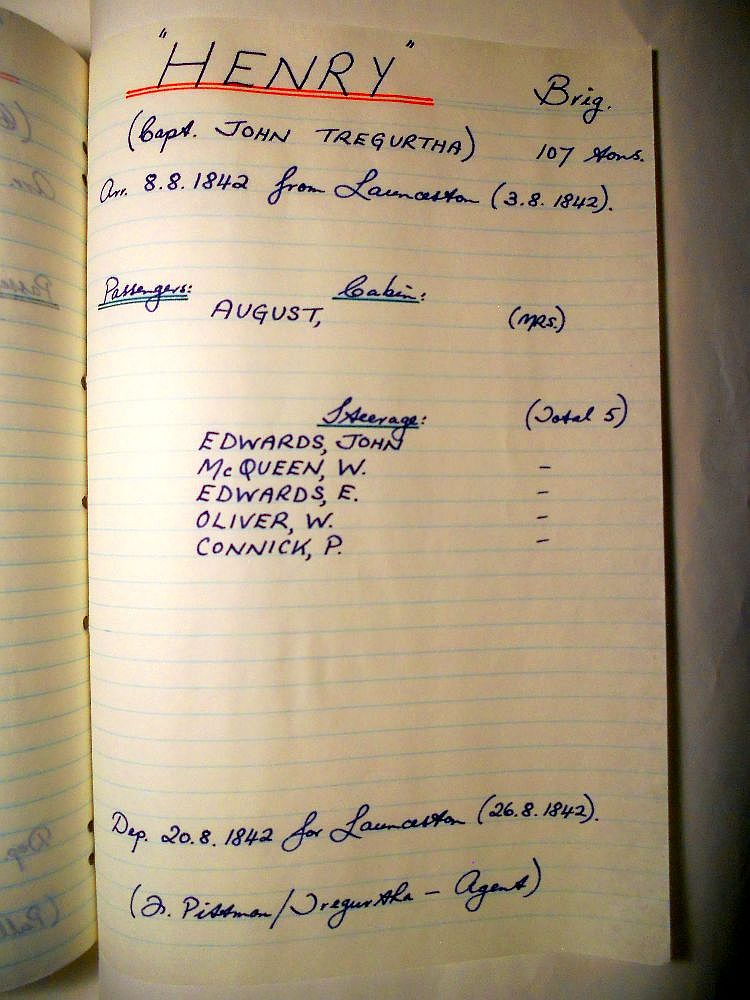 "HENRY"
Brig.
(Capt. JOHN TREGURTHA)
107 tons.
Arr. 8.8.1842 from Launceston (3.8.1842).
Passengers: Cabin:
AUGUST, (MRS.)
Steerage: (Total 5)
EDWARDS, JOHN
McQUEEN, W. -
EDWARDS, E. -
OLIVER, W. -
CONNICK, P. -
Dep. 20.8.1842 for Launceston (26.8.1842).
Pittman/Tregurtha - Agent)